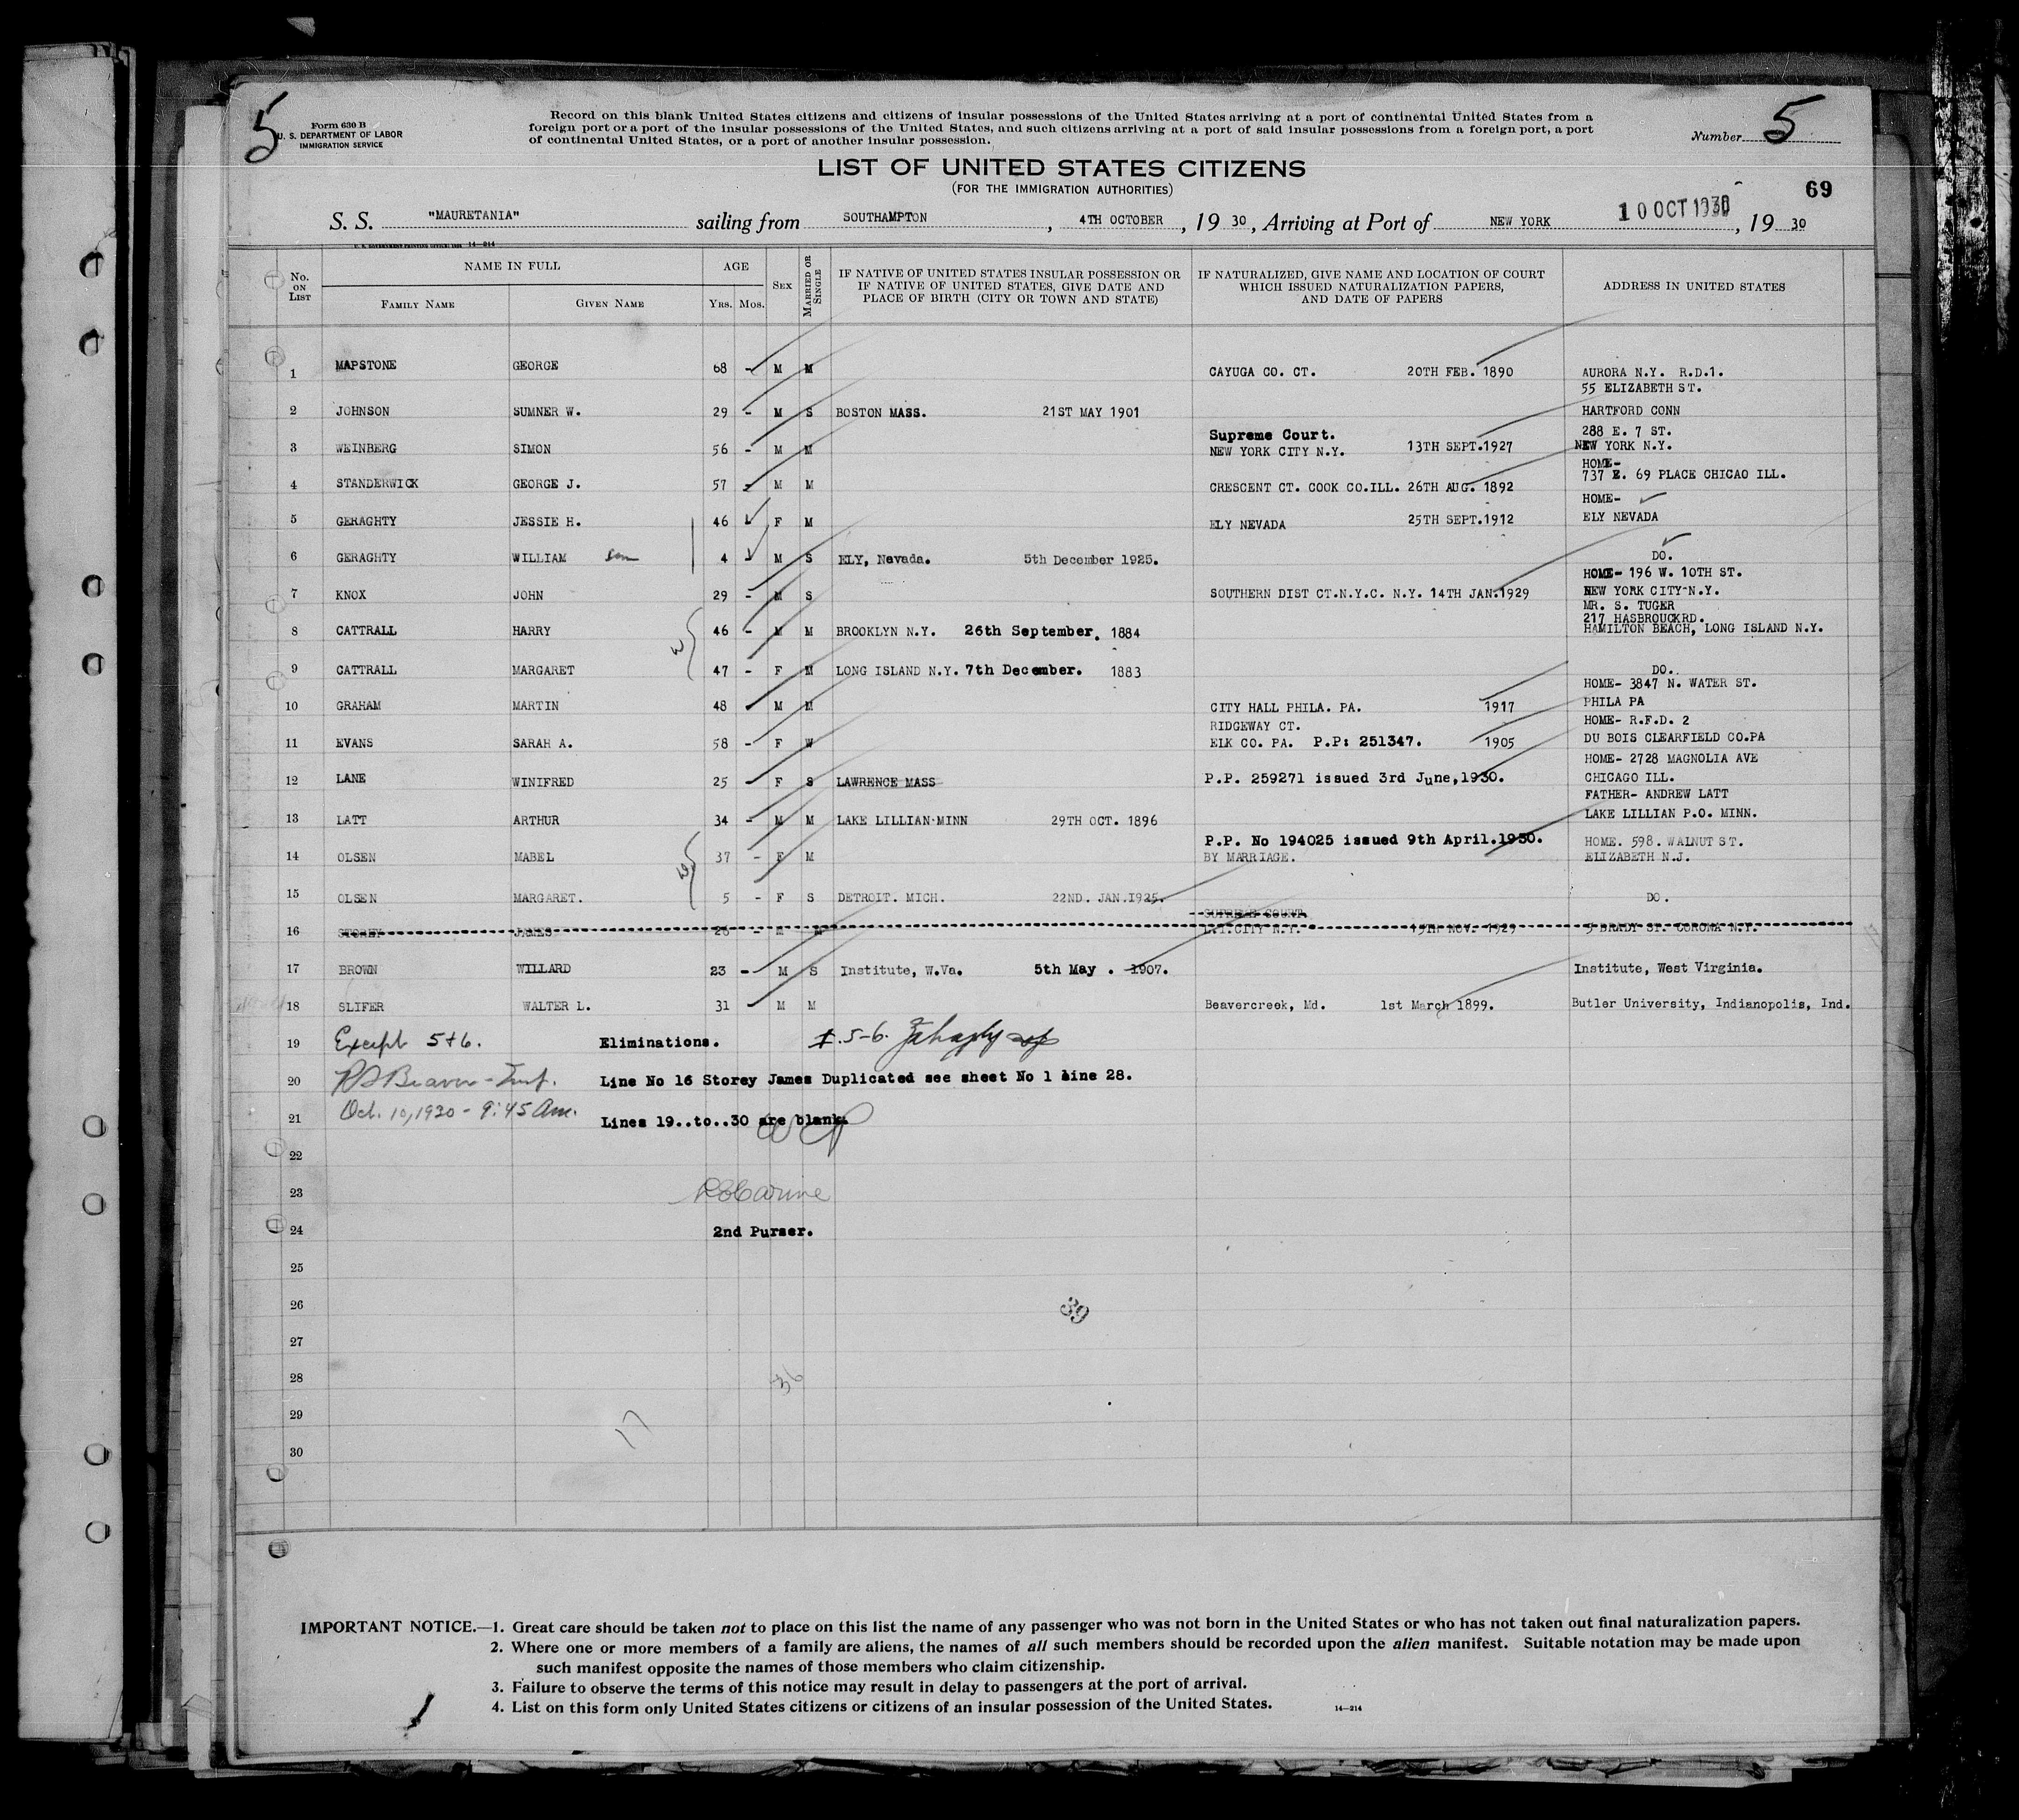 5
Form 630 B
U. S. DEPARTMENT OF LABOR
IMMIGRATION SERVICE
Record on this blank United States citizens and citizens of insular possessions of the United States arriving at a port of continental United States from a
foreign port or a port of the insular possessions of the United States, and such citizens arriving at a port of said insular possessions from a foreign port, a port
of continental United States, or a port of another insular possession.
Number 5
LIST OF UNITED STATES CITIZENS
(FOR THE IMMIGRATION AUTHORITIES)
69
S. S. "MAURETANIA" sailing from SOUTHAMPTON, 4TH OCTOBER, 19 30, Arriving at Port of NEW YORK 10 OCT 1930, 19 30
U. S. GOVERNMENT PRINTING OFFICE: 14—214
No. ON LIST
NAME IN FULL
FAMILY NAME GIVEN NAME
AGE
YRS. MOS.
SEX
MARRIED OR SINGLE
IF NATIVE OF UNITED STATES INSULAR POSSESSION OR
IF NATIVE OF UNITED STATES, GIVE DATE AND
PLACE OF BIRTH (CITY OR TOWN AND STATE)
IF NATURALIZED, GIVE NAME AND LOCATION OF COURT
WHICH ISSUED NATURALIZATION PAPERS,
AND DATE OF PAPERS
ADDRESS IN UNITED STATES
1 MAPSTONE GEORGE 68 - M M CAYUGA CO. CT. 20TH FEB. 1890 AURORA N.Y. R.D.1.
55 ELIZABETH ST.
2 JOHNSON SUMNER W. 29 - M S BOSTON MASS. 21ST MAY 1901 HARTFORD CONN
Supreme Court. 288 E. 7 ST.
3 WEINBERG SIMON 56 - M M NEW YORK CITY N.Y. 13TH SEPT.1927 NEW YORK N.Y.
HOME-
4 STANDERWICK GEORGE J. 57 - M M CRESCENT CT. COOK CO.ILL. 26TH AUG. 1892 737 E. 69 PLACE CHICAO ILL.
HOME-
5 GERAGHTY JESSIE H. 46 F M ELY NEVADA 25TH SEPT.1912 ELY NEVADA
6 GERAGHTY WILLIAM son 4 M S ELY, Nevada. 5th December 1925. DO.
HOME- 196 W. 10TH ST.
7 KNOX JOHN 29 - M S SOUTHERN DIST CT.N.Y.C. N.Y. 14TH JAN.1929 NEW YORK CITY-N.Y.
MR. S. TUGER
217 HASBROUCKRD.
8 CATTRALL HARRY 46 - M M BROOKLYN N.Y. 26th September. 1884 HAMILTON BEACH, LONG ISLAND N.Y.
9 CATTRALL MARGARET 47 - F M LONG ISLAND N.Y. 7th December. 1883 DO.
HOME- 3847 N. WATER ST.
10 GRAHAM MARTIN 48 M M CITY HALL PHILA. PA. 1917 PHILA PA
RIDGEWAY CT. HOME- R.F.D. 2
11 EVANS SARAH A. 58 - F W ELK CO. PA. P.P: 251347. 1905 DU BOIS CLEARFIELD CO.PA
HOME- 2728 MAGNOLIA AVE
12 LANE WINIFRED 25 F S LAWRENCE MASS P.P. 259271 issued 3rd June,1930. CHICAGO ILL.
FATHER- ANDREW LATT
13 LATT ARTHUR 34 - M M LAKE LILLIAN-MINN 29TH OCT. 1896 LAKE LILLIAN P.O. MINN.
P.P. No 194025 issued 9th April.1930. HOME. 598. WALNUT ST.
14 OLSEN MABEL 37 - F M BY MARRIAGE. ELIZABETH N.J.
15 OLSEN MARGARET. 5 - F S DETROIT. MICH. 22ND. JAN.1925. DO.
SUPREME COURT.
16 STOREY JAMES 26 - M M L.I.CITY N.Y. 15TH NOV. 1929 5 BRADY ST. CORONA N.Y.
17 BROWN WILLARD 23 - M S Institute, W.Va. 5th May . 1907. Institute, West Virginia.
18 SLIFER WALTER L. 31 M M Beavercreek, Md. 1st March 1899. Butler University, Indianopolis, Ind.
19 Except 5+6. Eliminations. 5-6.
20 Line No 16 Storey James Duplicated see sheet No 1 line 28.
21 Oct. 10, 1930 - 9:45 Am. Lines 19..to..30 are blank.
22
23
24 2nd Purser.
25
26 39
27
28 36
29 17
30
IMPORTANT NOTICE.—1. Great care should be taken not to place on this list the name of any passenger who was not born in the United States or who has not taken out final naturalization papers.
2. Where one or more members of a family are aliens, the names of all such members should be recorded upon the alien manifest. Suitable notation may be made upon
such manifest opposite the names of those members who claim citizenship.
3. Failure to observe the terms of this notice may result in delay to passengers at the port of arrival.
4. List on this form only United States citizens or citizens of an insular possession of the United States. 14—214